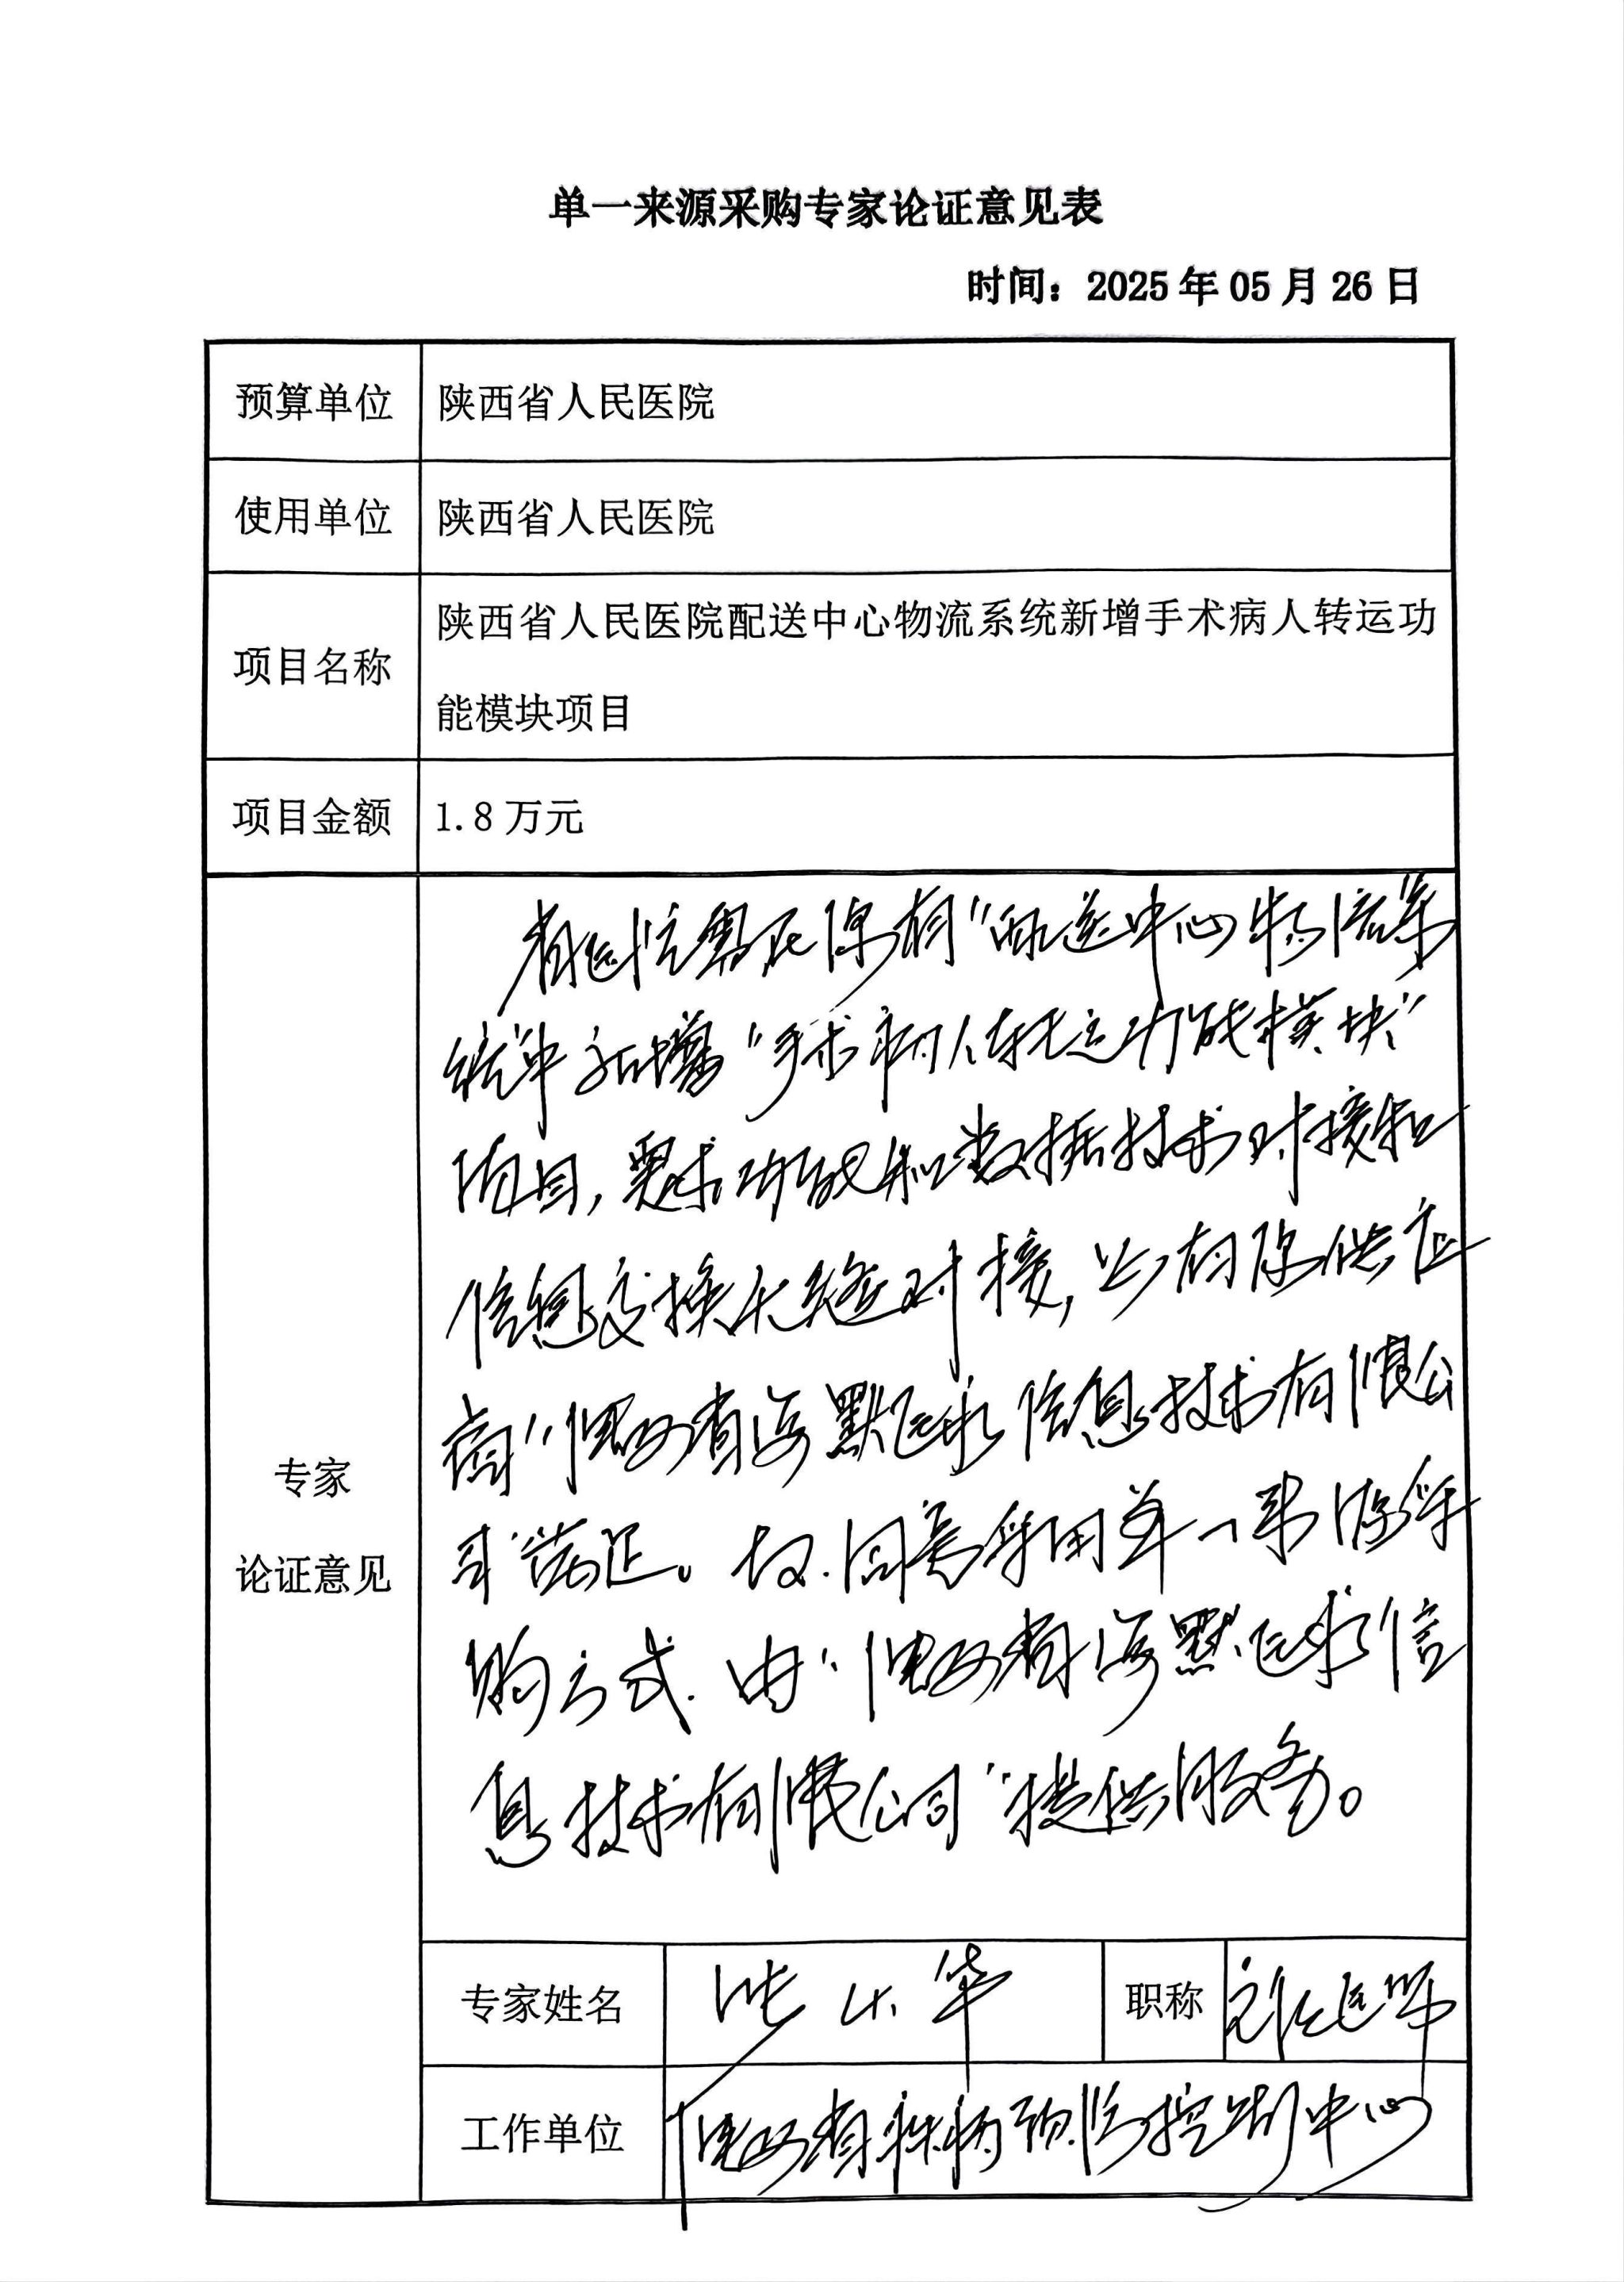 单一来源采购专家论证意见表
时间：2025年05月26日
预算单位 陕西省人民医院
使用单位 陕西省人民医院
项目名称 陕西省人民医院配送中心物流系统新增手术病人转运功
能模块项目
项目金额 1.8万元
专家
论证意见
省医院需在原有“配送中心物流系
统中新增“手术病人转运功能模块”
项目，要求功能和数据技术对接和
信息交换无缝对接，只有原供应
商“陕西省海默飞永信息技术有限公
司”满足。故.同意采用单一来源采
购方式.由“陕西省海默飞永信
息技术有限公司”提供服务。
专家姓名 张 华 职称 主任医师
工作单位 陕西省疾病预防控制中心